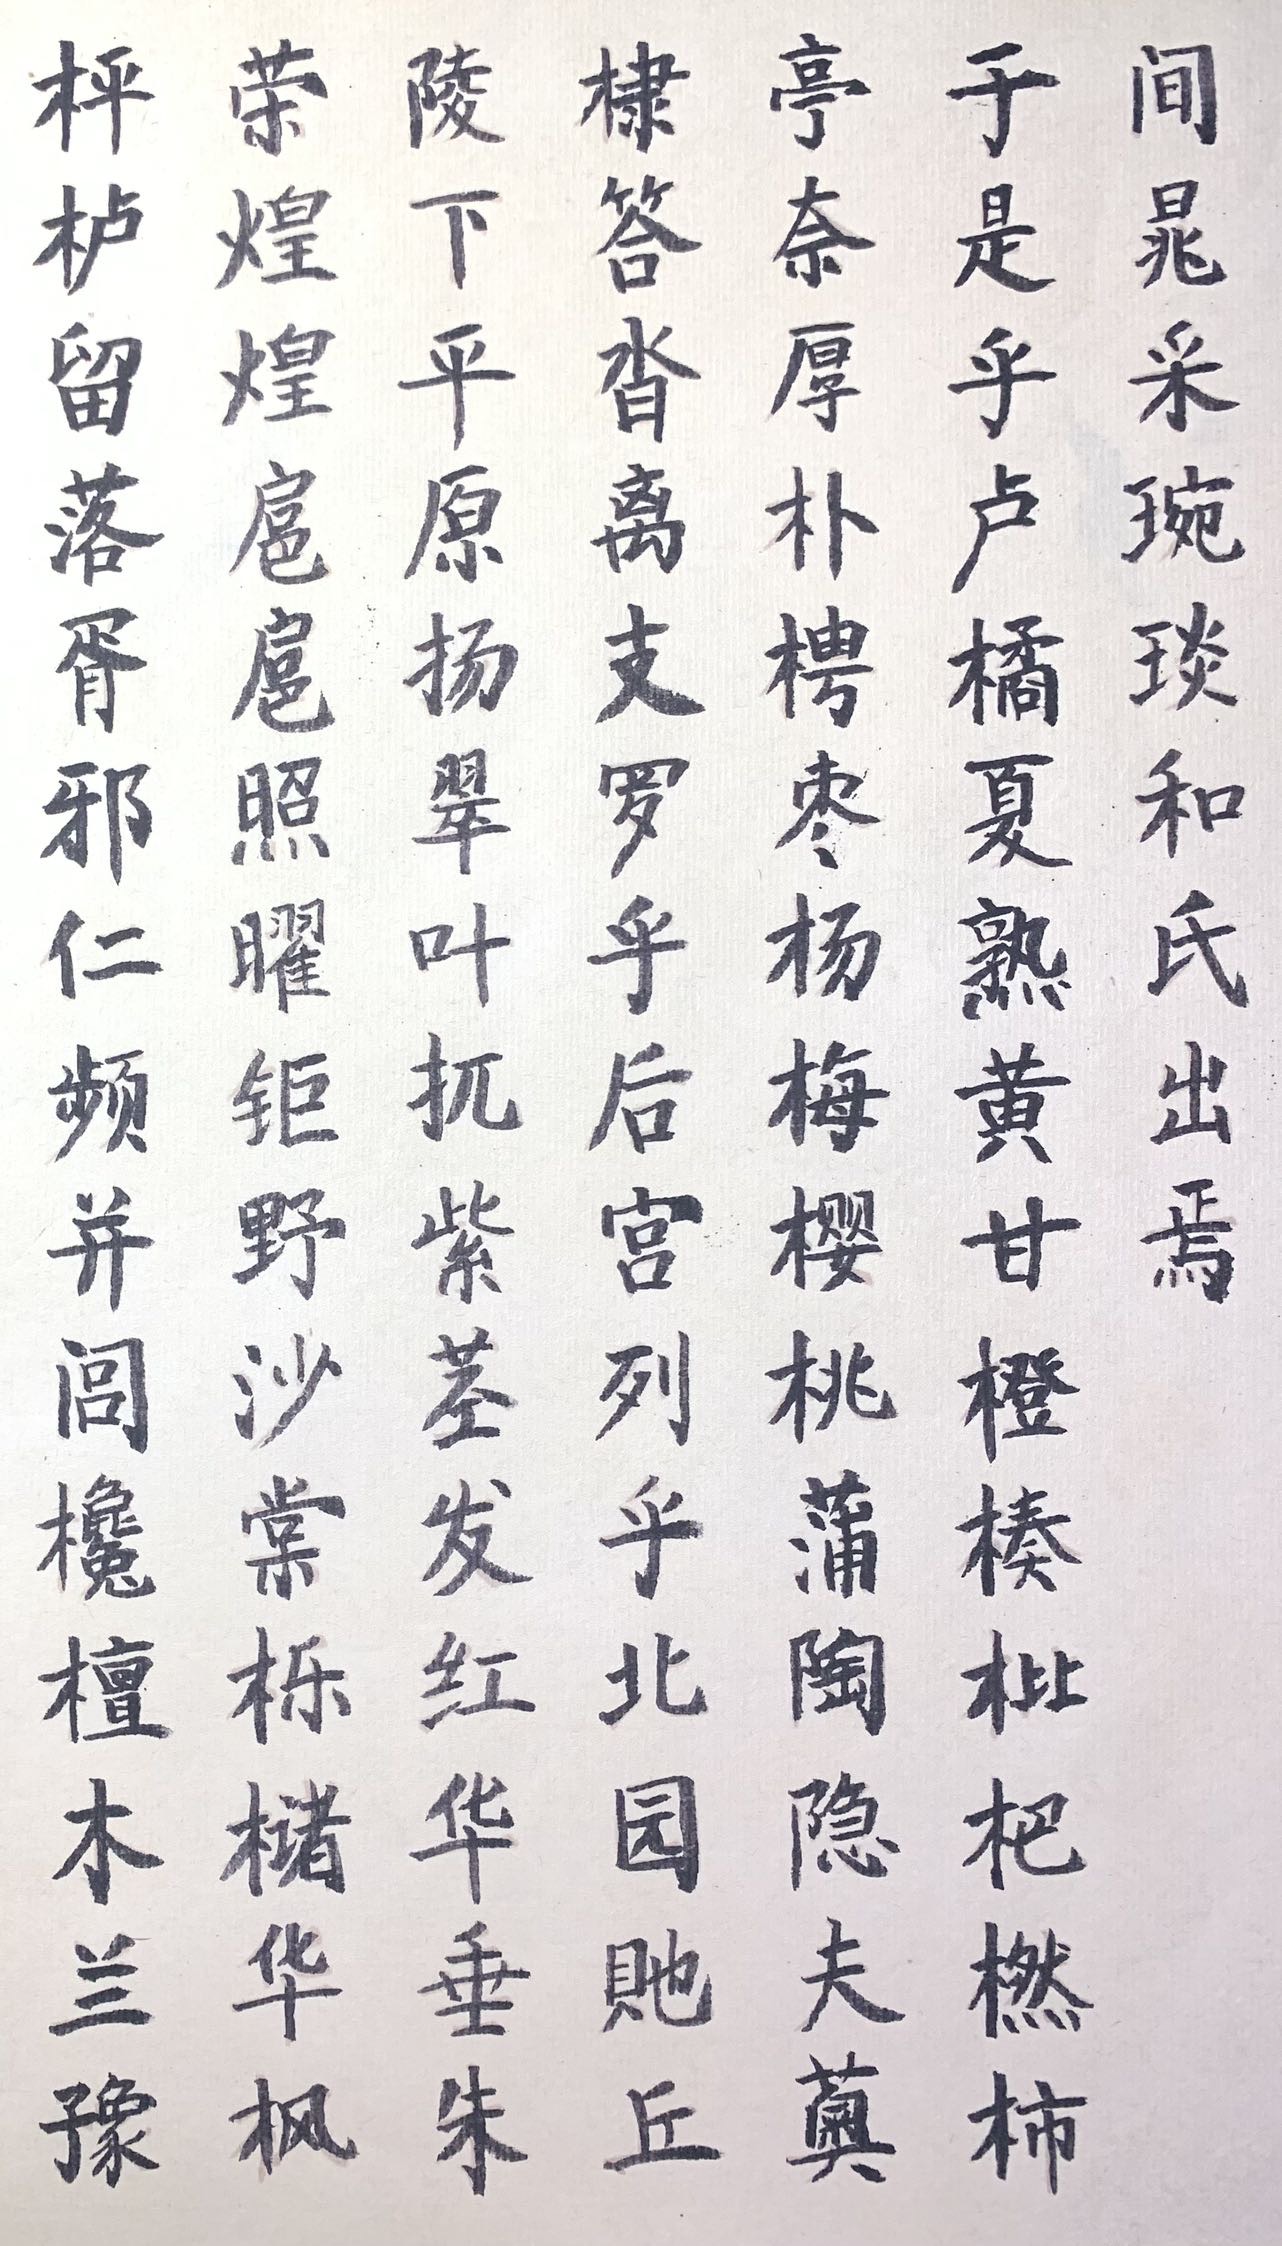 间晁采琬琰和氏出焉
于是乎卢橘夏熟黄甘橙楱枇杷橪柿
亭奈厚朴梬枣杨梅樱桃蒲陶隐夫薁
棣答沓离支罗乎后宫列乎北园貤丘
陵下平原扬翠叶扤紫茎发红华垂朱
荣煌煌扈扈照曜钜野沙棠栎槠华枫
枰栌留落胥邪仁频并闾欃檀木兰豫